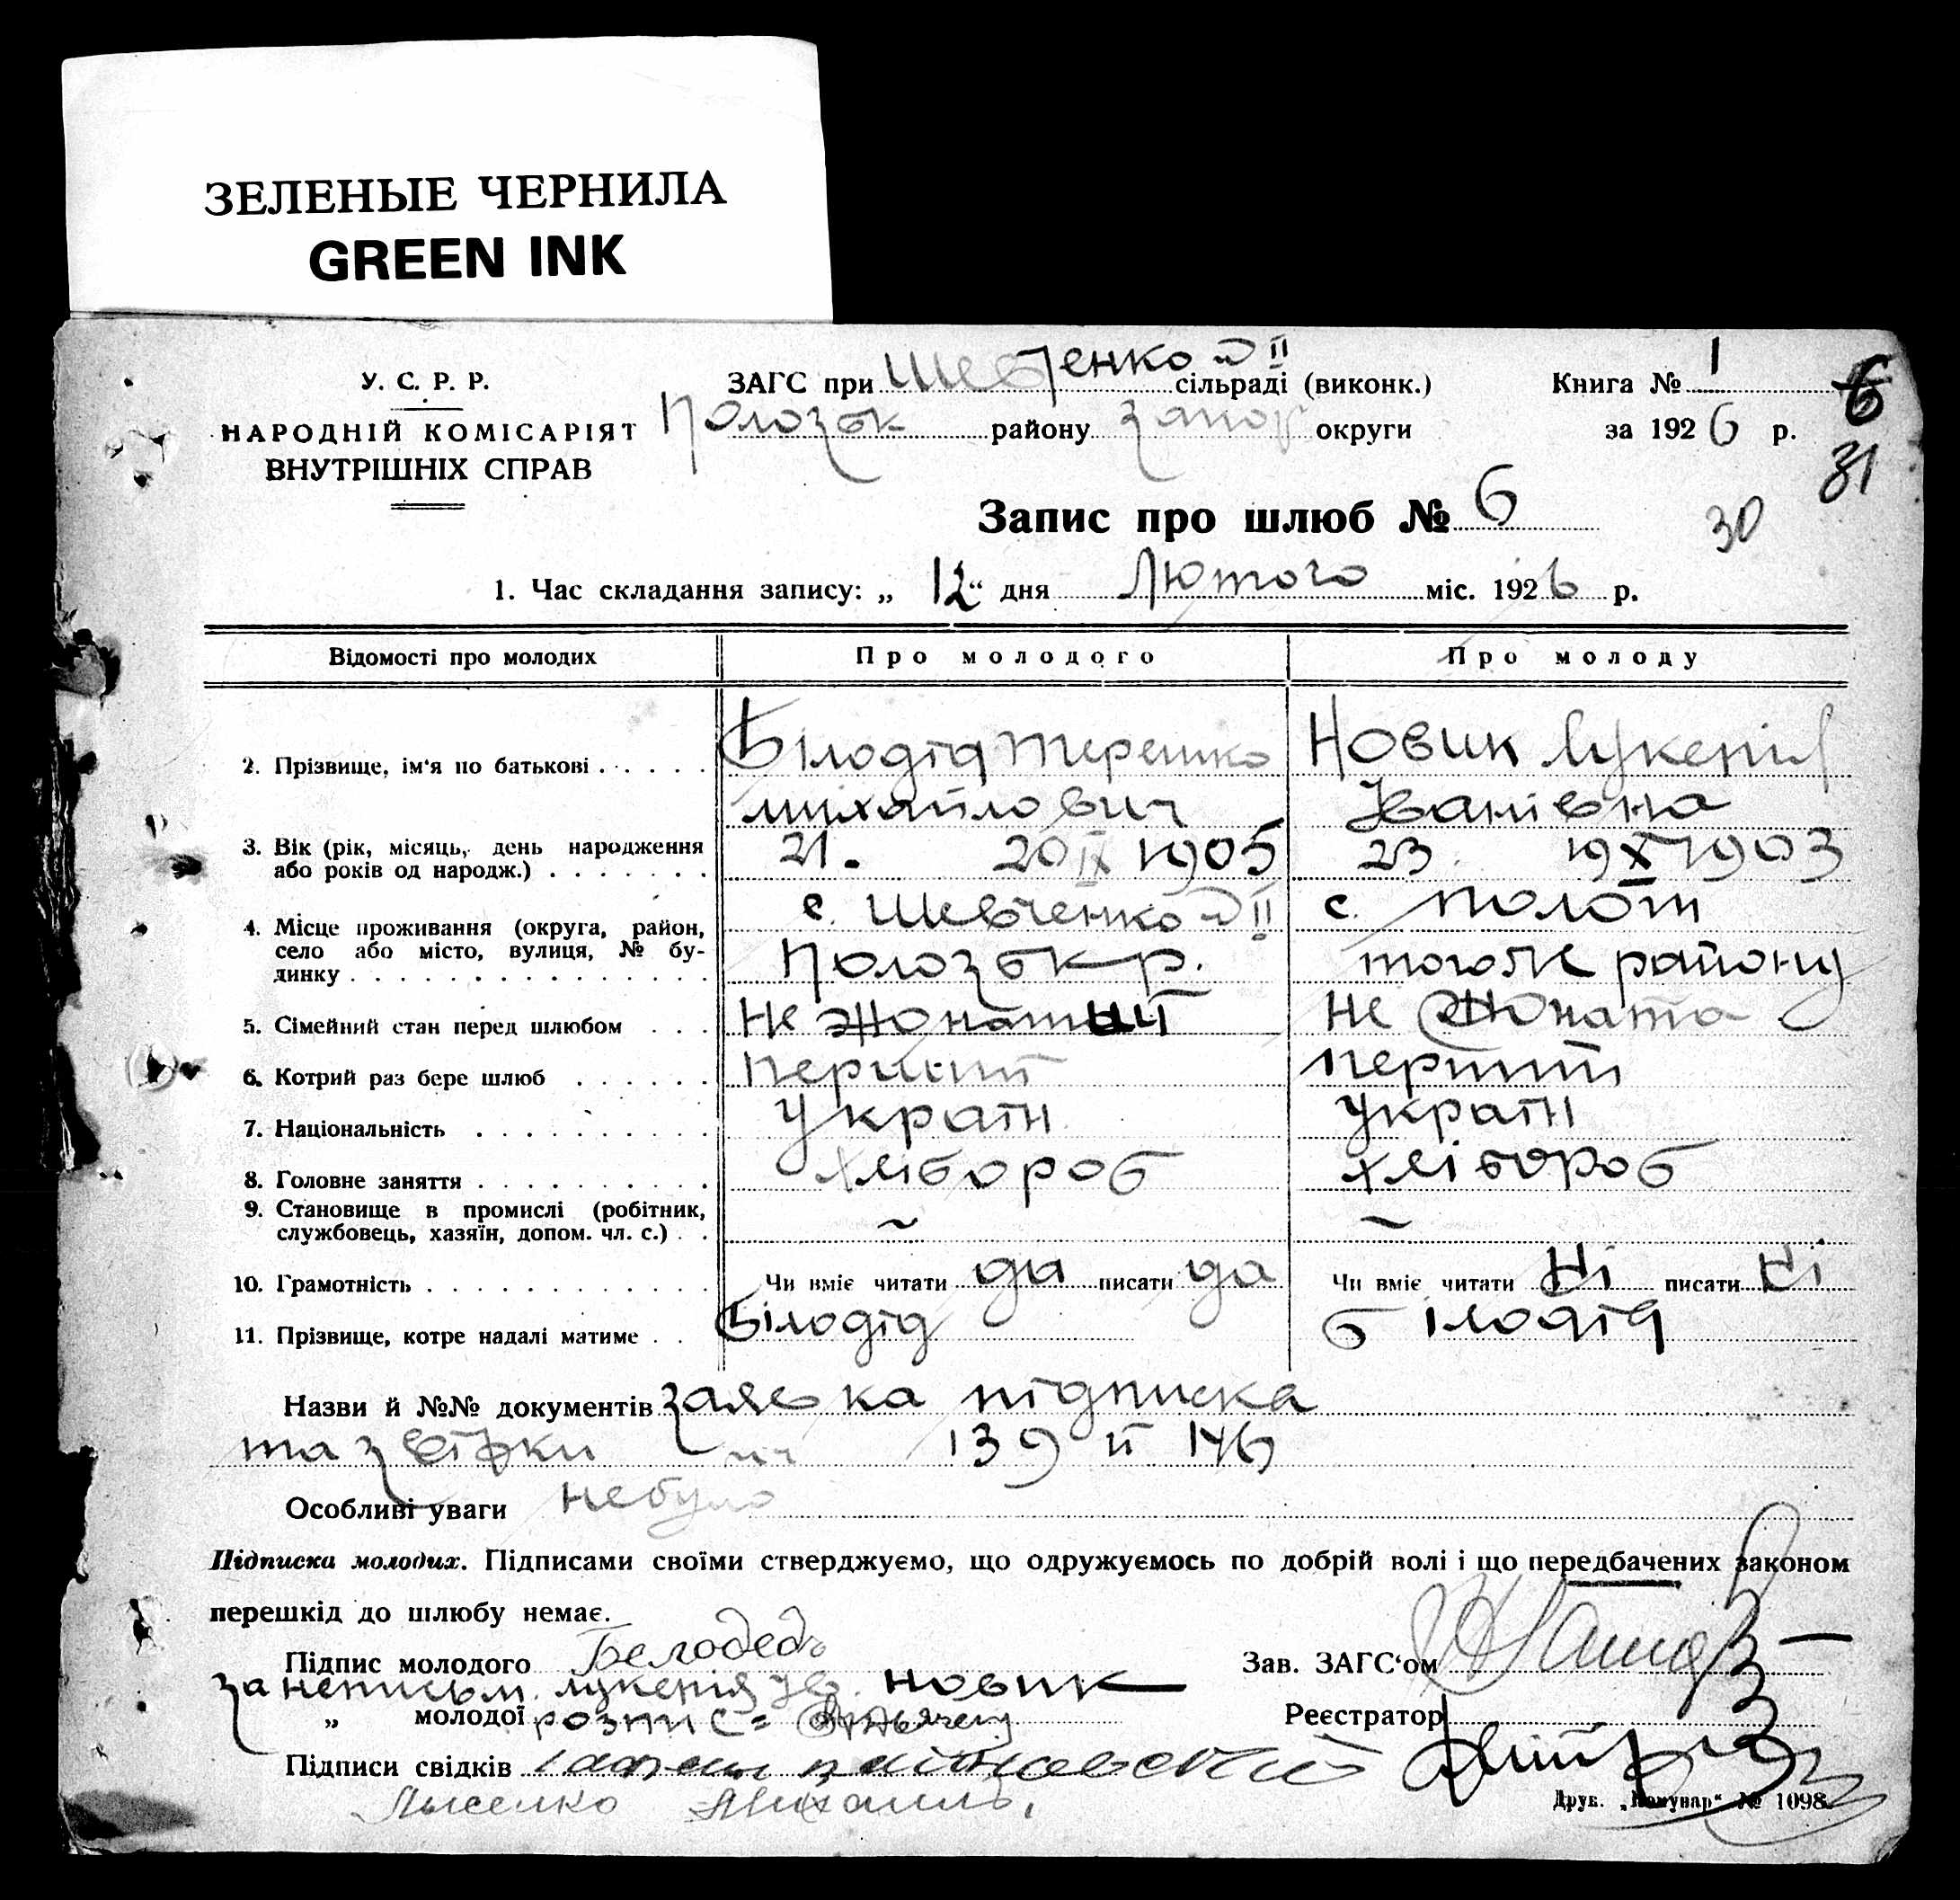 ЗЕЛЕНЫЕ ЧЕРНИЛА
GREEN INK
У. С. Р. Р.
НАРОДНІЙ КОМІСАРІЯТ
ВНУТРІШНІХ СПРАВ
ЗАГС при Шевченко II сільраді (виконк.)
Полозьк району Запор округи
Книга № 1
за 1926 р.
6
31
30
Запис про шлюб № 6
1. Час складання запису: „ 12 “ дня Лютого міс. 1926 р.
Відомості про молодих Про молодого Про молоду
2. Прізвище, ім'я по батькові Білодід Терешко Михайлович Новик Лукерія Іванівна
3. Вік (рік, місяць, день народження або років од народж.) 21. 20 IX 1905 23. 19 X 1903
4. Місце проживання (округа, район, село або місто, вулиця, № будинку с. Шевченко II Полозьк р. с. Пологи того ж району
5. Сімейний стан перед шлюбом Не жонатый Не жоната
6. Котрий раз бере шлюб перший перший
7. Національність Україн Україн
8. Головне заняття хлібороб хлібороб
9. Становище в промислі (робітник, службовець, хазяїн, допом. чл. с.) ~ ~
10. Грамотність Чи вміє читати да писати да Чи вміє читати ні писати ні
11. Прізвище, котре надалі матиме Білодід білодід
Назви й №№ документів заявка підписка
та звірки 139 й 146
Особливі уваги не було
Підписка молодих. Підписами своїми стверджуємо, що одружуємось по добрій волі і що передбачених законом
перешкід до шлюбу немає.
Підпис молодого Белодедъ
за неписьм. лукерія Ів. новик
„ молодої розпис=
Зав. ЗАГС'ом
Реєстратор
Підписи свідків
Лысенко Михаилъ.
Друк. „Комунар“ № 1098.